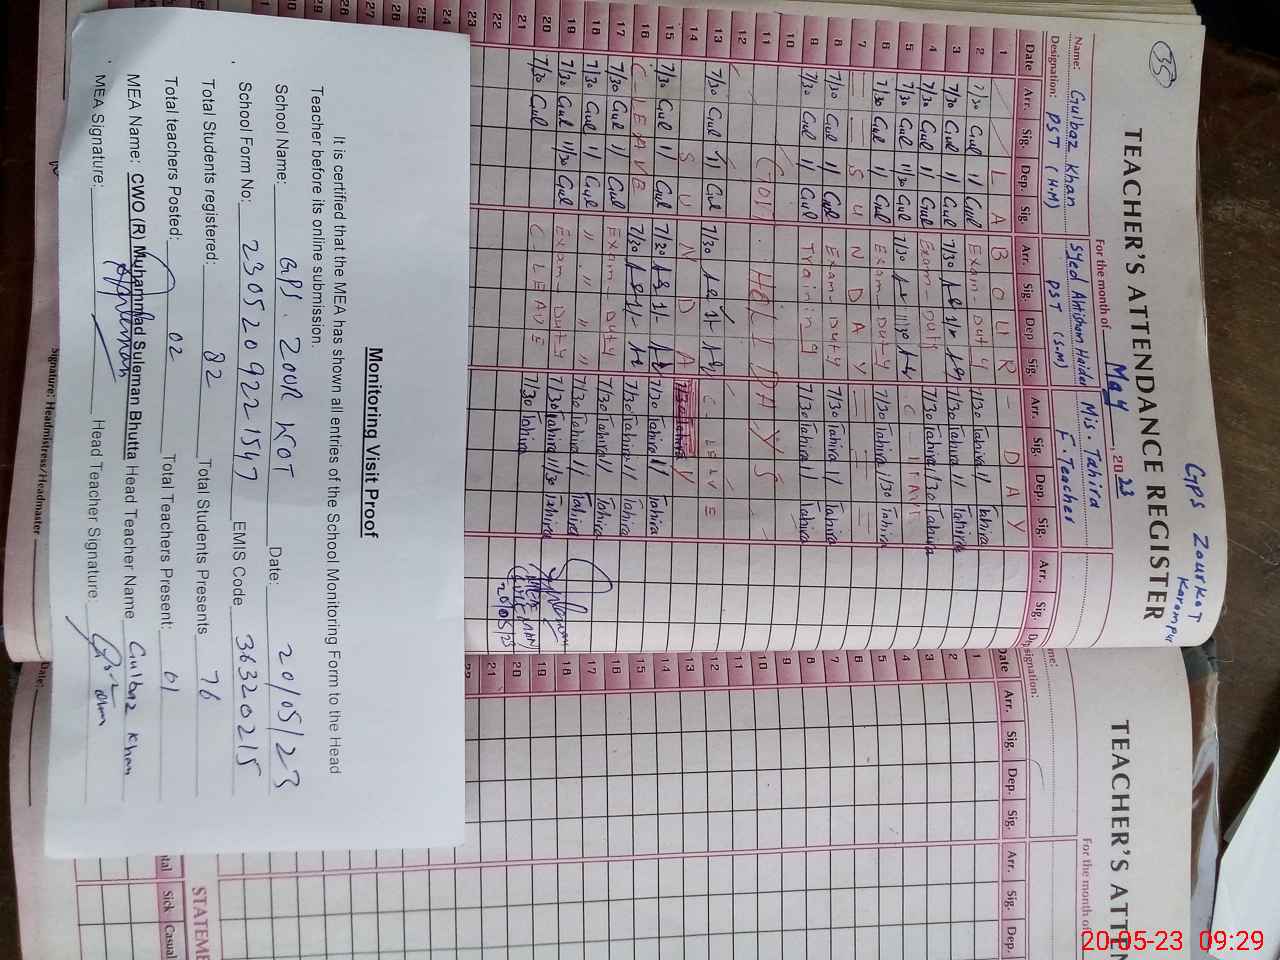 35
GPS Zourkot
Karampur
TEACHER'S ATTENDANCE REGISTER
For the month of May, 2023
Name: Gulbaz Khan Syed Ahtisham Haider Mis. Tahira
Designation: PST (H.M) PST (S.M) F. Teacher
Date Arr. Sig. Dep. Sig. Arr. Sig. Dep. Sig. Arr. Sig. Dep. Sig. Arr. Sig.
1 L A B O U R - D A Y
2 7/30 Gul 11 Gul Exam-Duty 7/30 Tahira 11 Tahira
3 7/30 Gul 11 Gul 7/30 7/30 Tahira 11 Tahira
4 7/30 Gul 11 Gul Exam-Duty 7/30 Tahira 11/30 Tahira
5 7/30 Gul 11/30 Gul 7/30 11/30 C-
6 7/30 Gul 11 Gul Exam-Duty 7/30 Tahira 11/30 Tahira
7 S U N D A Y
8 7/30 Gul 11 Gul Exam-Duty 7/30 Tahira 11 Tahira
9 7/30 Gul 11 Gul Training 7/30 Tahira 11 Tahira
10
11 Govt HOLIDAYS
12
13 7/30 Gul 11 Gul 7/30 C-
14 S U N D A Y
15 7/30 Gul 11 Gul 7/30 7/30 Tahira 11 Tahira
16 C-LEAVE 7/30 7/30 Tahira 11 Tahira
17 7/30 Gul 11 Gul Exam-Duty 7/30 Tahira 11 Tahira
18 7/30 Gul 11 Gul " " " 7/30 Tahira 11 Tahira
19 7/30 Gul 11/30 Gul Exam-Duty 7/30 Tahira 11/30 Tahira
20 7/30 Gul C-LEAVE 7/30 Tahira
20/05/23
21
22
23
24
25
26
27
28
Monitoring Visit Proof
It is certified that the MEA has shown all entries of the School Monitoring Form to the Head
Teacher before its online submission.
School Name: GPS. ZOUR KOT Date: 20/05/23
School Form No: 2305209221547 EMIS Code 36320215
Total Students registered: 82 Total Students Presents 76
Total teachers Posted: 02 Total Teachers Present: 01
MEA Name: CWO (R) Muhammad Suleman Bhutta Head Teacher Name Gulbaz Khan
MEA Signature: Head Teacher Signature:
Signature: Headmistress/Headmaster
TEACHER'S ATTEN
For the month of
Date Arr. Sig. Dep. Sig. Arr. Sig. Dep.
1
2
3
4
5
6
7
8
9
10
11
12
13
14
15
16
17
18
19
20
21
22
STATEME
Sick Casual
Date:
20-05-23 09:29